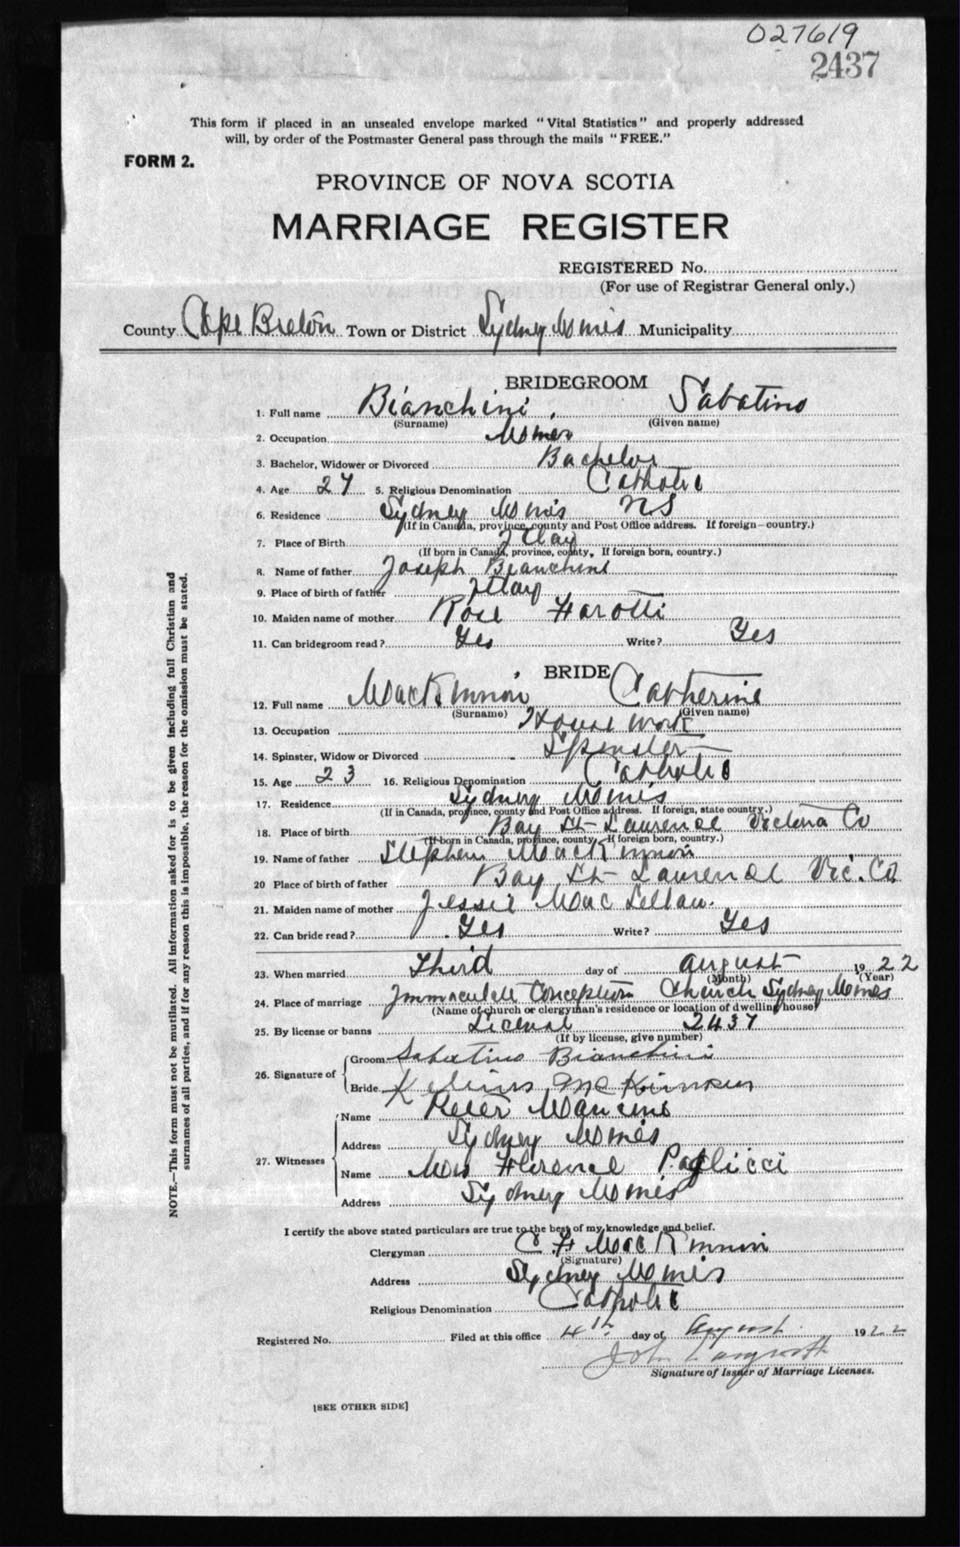 027619
2437
This form if placed in an unsealed envelope marked "Vital Statistics" and properly addressed
will, by order of the Postmaster General pass through the mails "FREE."
FORM 2.
PROVINCE OF NOVA SCOTIA
MARRIAGE REGISTER
REGISTERED No.
(For use of Registrar General only.)
County Cape Breton Town or District Sydney Mines Municipality
BRIDEGROOM
1. Full name Bianchini, Sabatino
(Surname) (Given name)
2. Occupation Miner
3. Bachelor, Widower or Divorced Bachelor
4. Age 27 5. Religious Denomination Catholic
6. Residence Sydney Mines NS
(If in Canada, province, county and Post Office address. If foreign—country.)
7. Place of Birth Italy
(If born in Canada, province, county, If foreign born, country.)
8. Name of father Joseph Bianchini
9. Place of birth of father Italy
10. Maiden name of mother Rose Farotti
11. Can bridegroom read? Yes Write? Yes
BRIDE
12. Full name MacKinnon Catherine
(Surname) (Given name)
13. Occupation House work
14. Spinster, Widow or Divorced Spinster
15. Age 23 16. Religious Denomination Catholic
17. Residence Sydney Mines
(If in Canada, province, county and Post Office address. If foreign, state country.)
18. Place of birth Bay St Laurence Victoria Co
(If born in Canada, province, county, If foreign born, country.)
19. Name of father Stephen MacKinnon
20 Place of birth of father Bay St Laurence Vic. Co
21. Maiden name of mother Jessie MacLellan.
22. Can bride read? Yes Write? Yes
23. When married Third day of August 1922
(Month) (Year)
24. Place of marriage Immaculate Conception Church Sydney Mines
(Name of church or clergyman's residence or location of dwelling house)
25. By license or banns License 2437
(If by license, give number)
26. Signature of Groom Sabatino Bianchini
Bride Mc Kinnon
27. Witnesses Name Peter Mancini
Address Sydney Mines
Name Mrs Florence Paglicci
Address Sydney Mines
I certify the above stated particulars are true to the best of my knowledge and belief.
Clergyman C F MacKinnon
(Signature)
Address Sydney Mines
Religious Denomination Catholic
Registered No. Filed at this office 4th day of August 1922
John
Signature of Issuer of Marriage Licenses.
[SEE OTHER SIDE]
NOTE.—This form must not be mutilated. All information asked for is to be given including full Christian and
surnames of all parties, and if for any reason this is impossible, the reason for the omission must be stated.